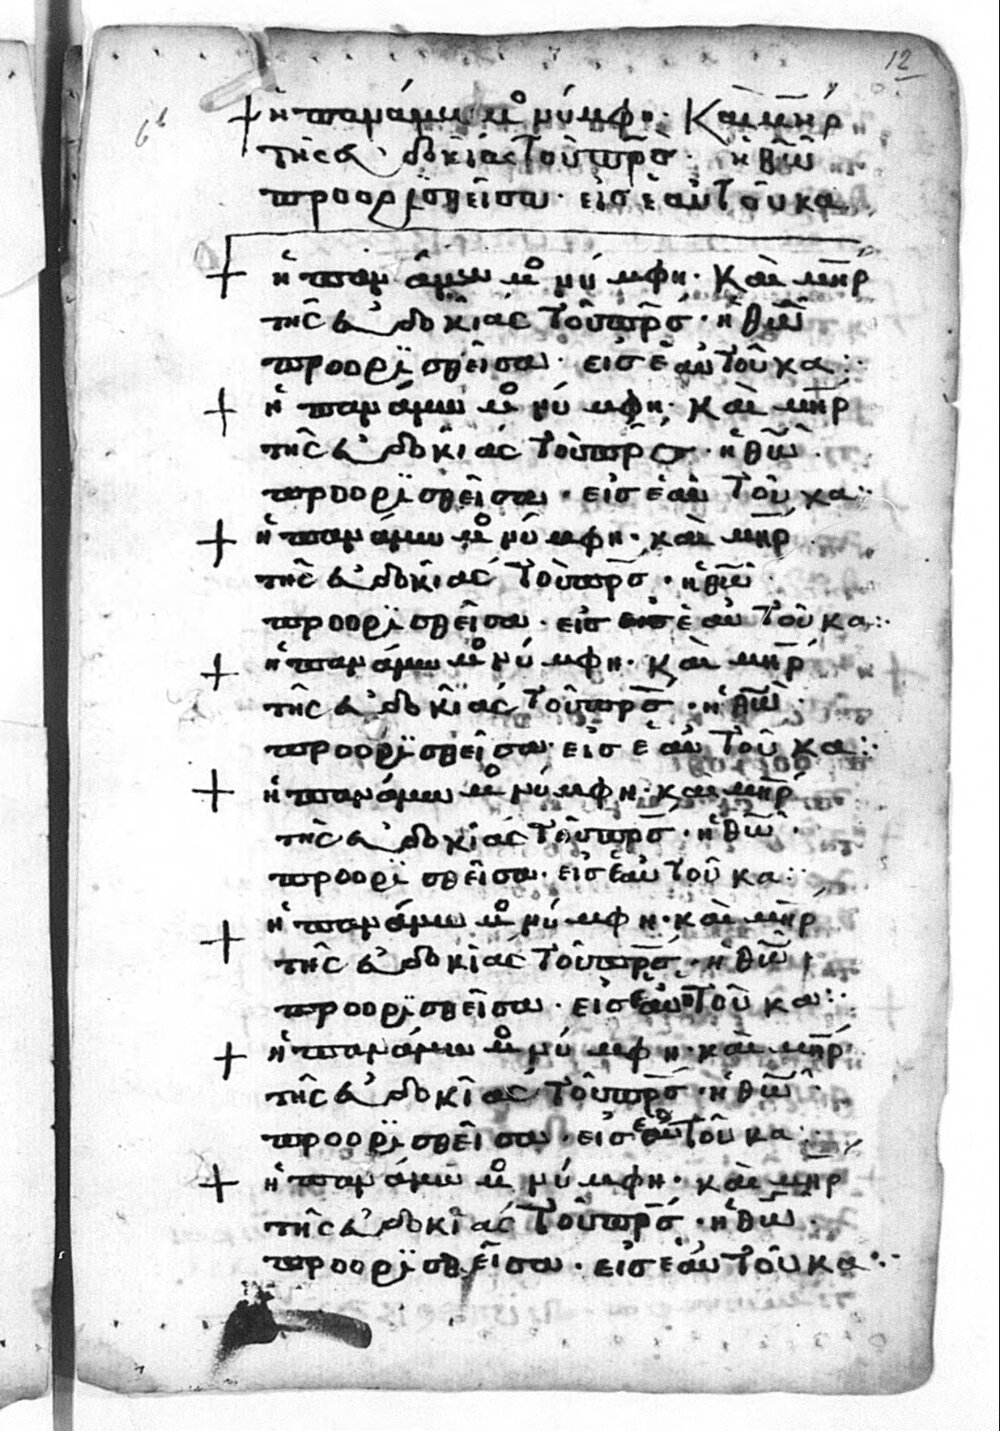 12
+ ἡ παμάμω μο νύμφη· Καὶ μηρ
τῆς εὐδοκίας τοῦ πρσ· ἡ θω
προορϊσθεῖσα· εἰς ἑαυτοῦ κα
+ ἡ παμάμω μο νύμφη· Καὶ μηρ
τῆς εὐδοκίας τοῦ πρσ· ἡ θω
προορϊσθεῖσα· εἰς ἑαυτοῦ κα:·
+ ἡ παμάμω μο νύμφη· Καὶ μηρ
τῆς εὐδοκίας τοῦ πρσ· ἡ θω·
προορϊσθεῖσα· εἰς ἑαυτοῦ κα:·
+ ἡ παμάμω μο νύμφη· καὶ μηρ
τῆς εὐδοκίας τοῦ πρσ· ἡ θω·
προορϊσθεῖσα· εἰς ἑαυτοῦ κα:·
+ ἡ παμάμω μο νύμφη· καὶ μηρ
τῆς εὐδοκίας τοῦ πρσ· ἡ θω·
προορϊσθεῖσα· εἰς ἑαυτοῦ κα:·
+ ἡ παμάμω μο νύμφη· καὶ μηρ
τῆς εὐδοκίας τοῦ πρσ· ἡ θω·
προορϊσθεῖσα· εἰς ἑαυτοῦ κα:·
+ ἡ παμάμω μο νύμφη· καὶ μηρ
τῆς εὐδοκίας τοῦ πρσ· ἡ θω
προορϊσθεῖσα· εἰς ἑαυτοῦ κα:·
+ ἡ παμάμω μο νύμφη· καὶ μηρ
τῆς εὐδοκίας τοῦ πρσ· ἡ θω·
προορϊσθεῖσα· εἰς ἑαυτοῦ κα:·
+ ἡ παμάμω μο νύμφη· καὶ μηρ
τῆς εὐδοκίας τοῦ πρσ· ἡ θω·
προορϊσθεῖσα· εἰς ἑαυτοῦ κα:·